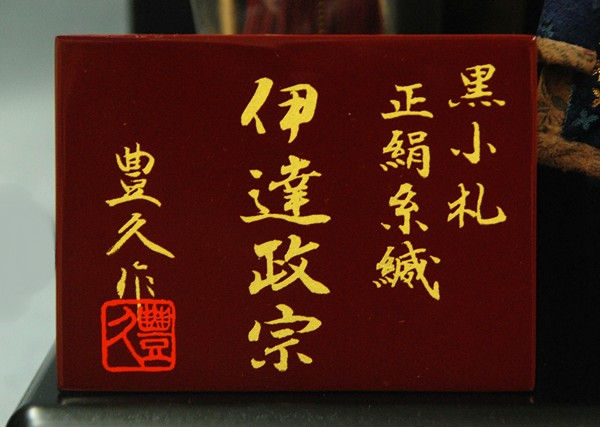 黒小札
正絹糸縅
伊達政宗
豊久作
豊久